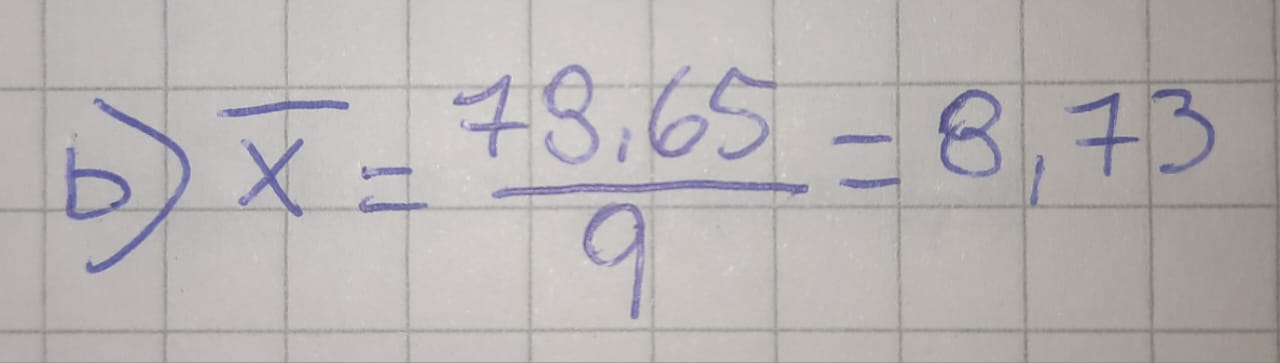 b) x̄ = 78,65 / 9 = 8,73